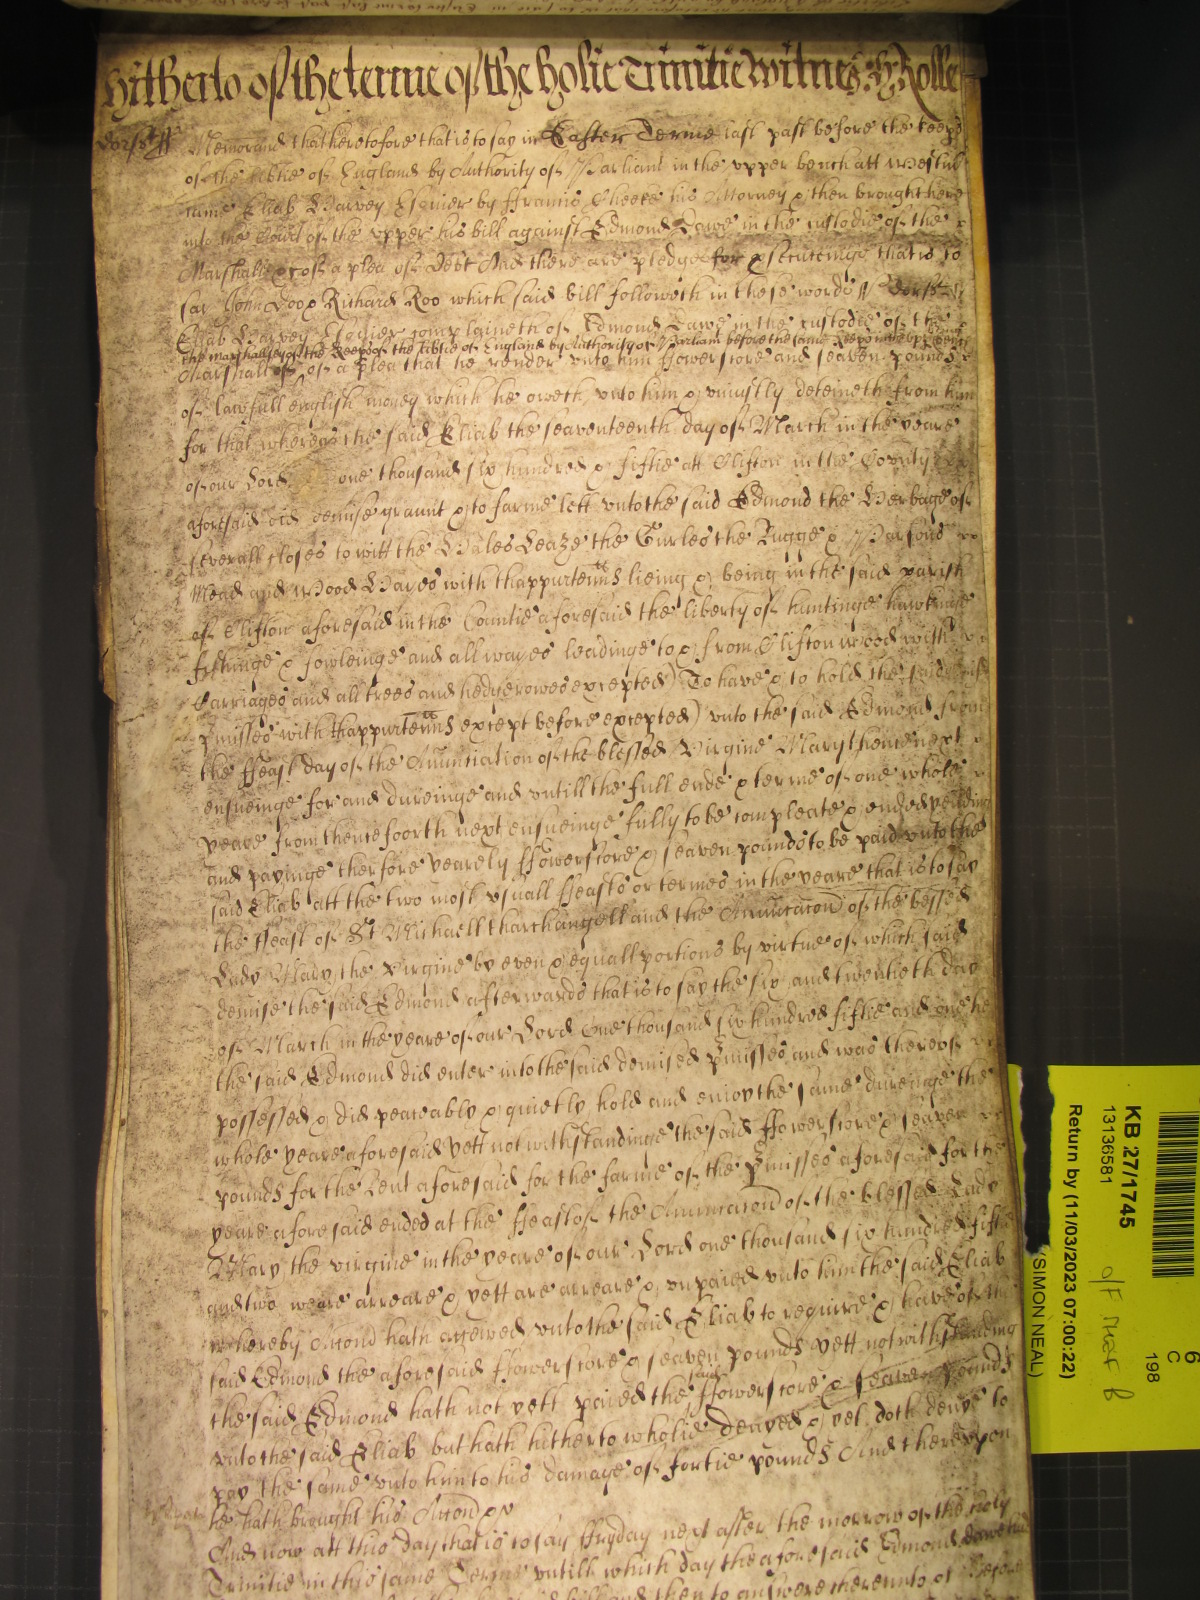 hitherto of the terme of the holie Trinitie witnes: H: Rolle
Dorss ss Memorand that heretofore that is to say in Easter Terme last past before the keeps
of the libtie of England by Authority of Parliamt in the upper bench att Westm
came Eliab Harvey Esquier by ffrancis Cheeke his Attorney & then brought here
into the Court of the upper his bill against Edmond Lawe in the custodie of the
Marshall &c of a plea of Debt And there are pledge for psecutinge that is to
say John Doo & Richard Roo which said bill followeth in these words // Dorss ss
Eliab Harvey Esquier complaineth of Edmond Lawe in the custodie of the
the marshallsey of the keeps of the libtie of England by Authority of Parliam before the same keeps in the upp bench
Marshall of a plea that he render unto him ffowerscore and seaven pounds
of lawfull english money which he oweth unto him & uniustly deteineth from him
for that whereas the said Eliab the seaventeenth day of March in the yeare
of our Lord one thousand six hundred & fiftie att Clifton in the County
aforesaid did demise graunt & to farme lett unto the said Edmond the Herbage of
severall closes to witt the Hales Leaze the Gurles the Rugge & Parsons
Mead and Wood Hayes with thappurtenncs lieing & being in the said parish
of Clifton aforesaid in the Countie aforesaid the liberty of huntinge hawkinge
fishinge & fowleinge and all wayes leadinge to & from Clifton wood with
Carriages and all trees and hedgerowes excepted) To have & to hold the said
pmisses with thappurtenncs except before excepted) unto the said Edmond from
the ffeast day of the Anunciation of the blessed Virgine Mary thence next
ensueinge for and dureinge and untill the full ende & terme of one whole
yeare from thenceforth next ensueinge fully to be compleate & ended yeilding
and payinge therfore yearely ffowerscore & seaven pounds to be paid unto the
said Eliab att the two most usuall ffeasts or termes in the yeare that is to say
the ffeast of St Michaell tharchangell and the Anunciacon of the blessed
Lady Mary the virgine by even & equall portions by virtue of which said
demise the said Edmond afterwards that is to say the six and twentieth day
of March in the yeare of our Lord One thousand six hundred fiftie and one he
the said Edmond did enter into the said demised pmisses and was thereof
possessed & did peaceably & quietly hold and enioy the same dureinge the
whole yeare aforesaid yett notwithstandinge the said ffowerscore & seaven
pounds for the Rent aforesaid for the farme of the pmisses aforesaid for the
yeare aforesaid ended at the ffeast of the Anunciacon of the blessed Lady
Mary the virgine in the yeare of our Lord one thousand six hundred fiftie
and two weare arreare & yett are arreare & unpaied unto him the said Eliab
whereby Accon hath accrewed unto the said Eliab to require & have of the
said Edmond the aforesaid ffowerscore & seaven pounds yett notwithstanding
the said Edmond hath not yett paied the said ffowerscore & seaven pounds
unto the said Eliab but hath hitherto wholie denyed & yet doth denye to
pay the same unto him to his damage of fortie pounds And thereupon
he hath brought his Accon &c
And now att this day that is to say ffryday next after the morrow of the holy
Trinitie in this same Terme untill which day the aforesaid Edmond Lawe had
bill and then to answere thereunto &c Before
KB 27/1745
13136581
Return by (11/03/2023 07:00:22)
(SIMON NEAL)
6
C
198